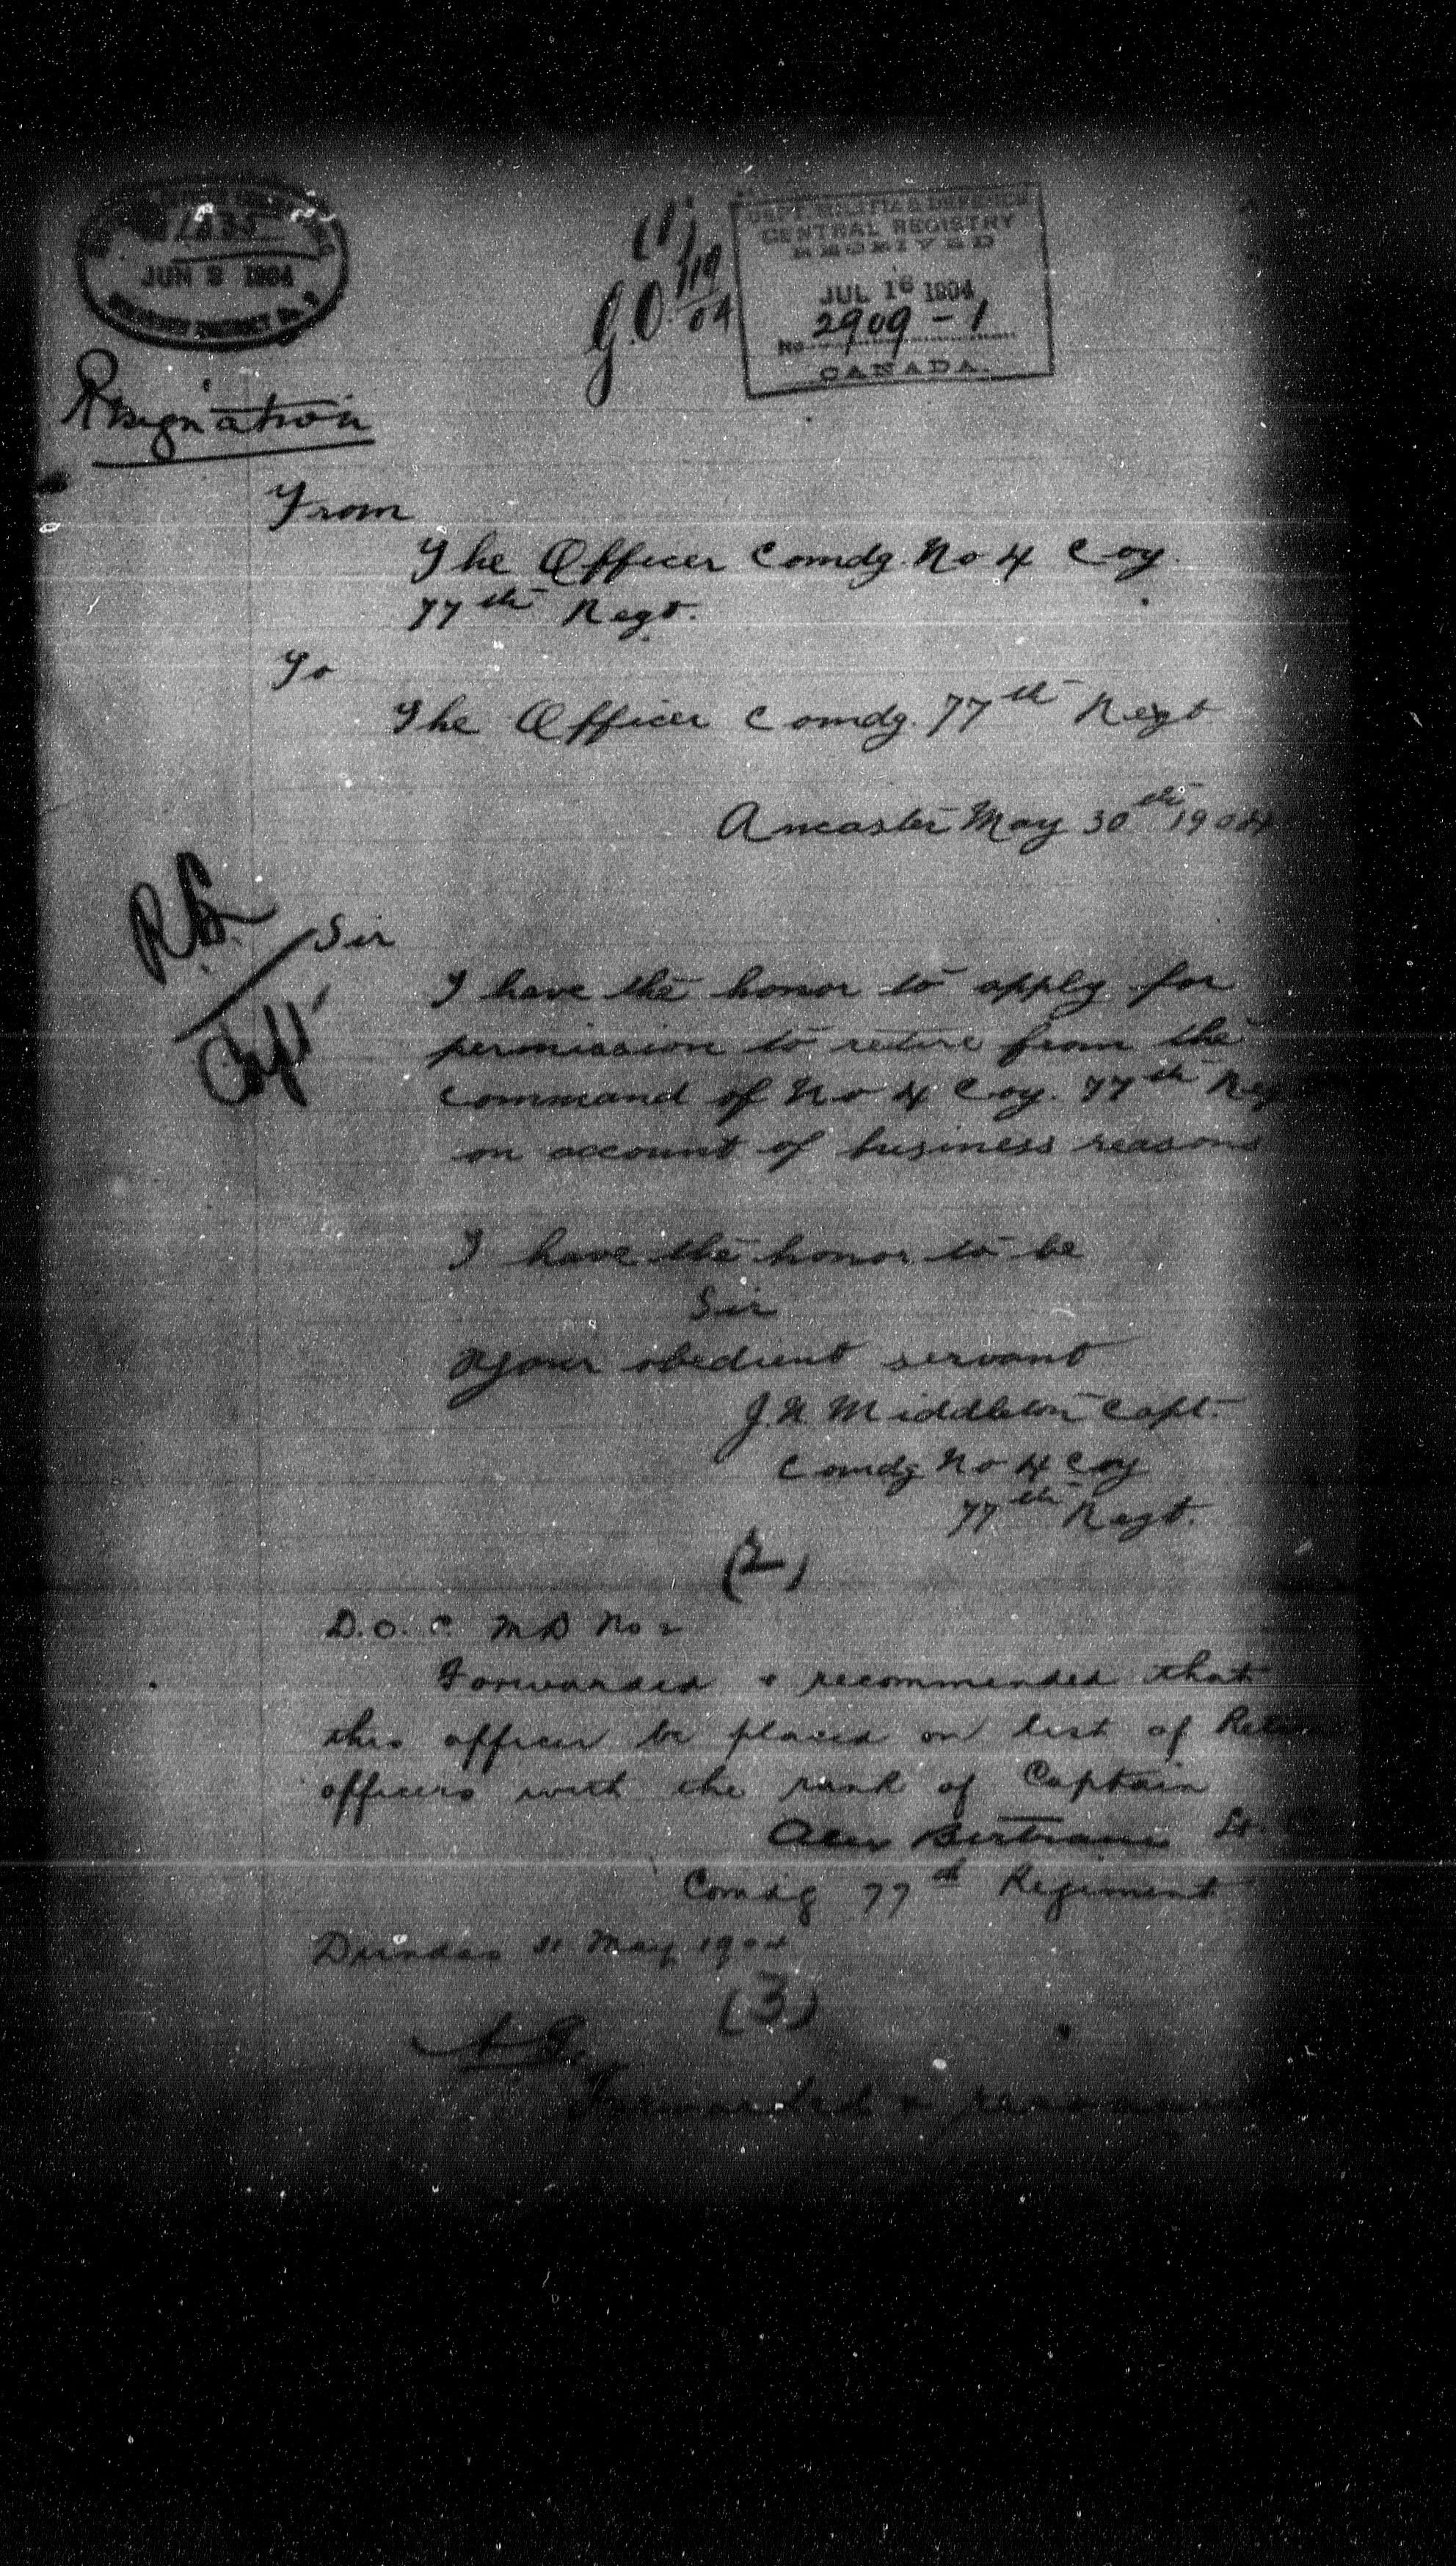 JUN 2 1904
MILITARY DISTRICT No. 2
(1)
G.O. 119/04
DEPT. MILITIA & DEFENCE
CENTRAL REGISTRY
RECEIVED
JUL 16 1904
No. 2909-1
CANADA.
Resignation
From
The Officer Comdg. No 4 Coy.
77th Regt.
To
The Officer Comdg. 77th Regt
Ancaster May 30th 1904
Sir
Capt
I have the honor to apply for
permission to retire from the
command of No 4 Coy. 77th Reg
on account of business reasons
I have the honor to be
Sir
your obedient servant
J. N Middleton Capt.
Comdg No 4 Coy
77th Regt.
(2)
D.O.C. MD No 2
Forwarded & recommended that
this officer be placed on list of
officers with the rank of Captain
Alex Bertram Lt.
Comdg 77th Regiment
Dundas 31 May 1904
(3)
A.G.
Forwarded &